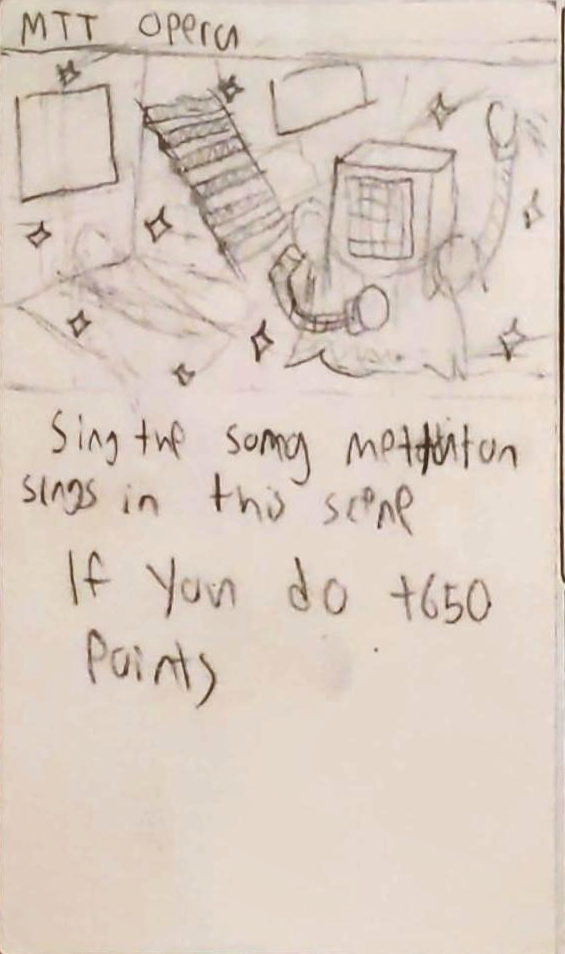 MTT Opera
Sing the somg mettaton
sings in this scene
If you do +650
Points